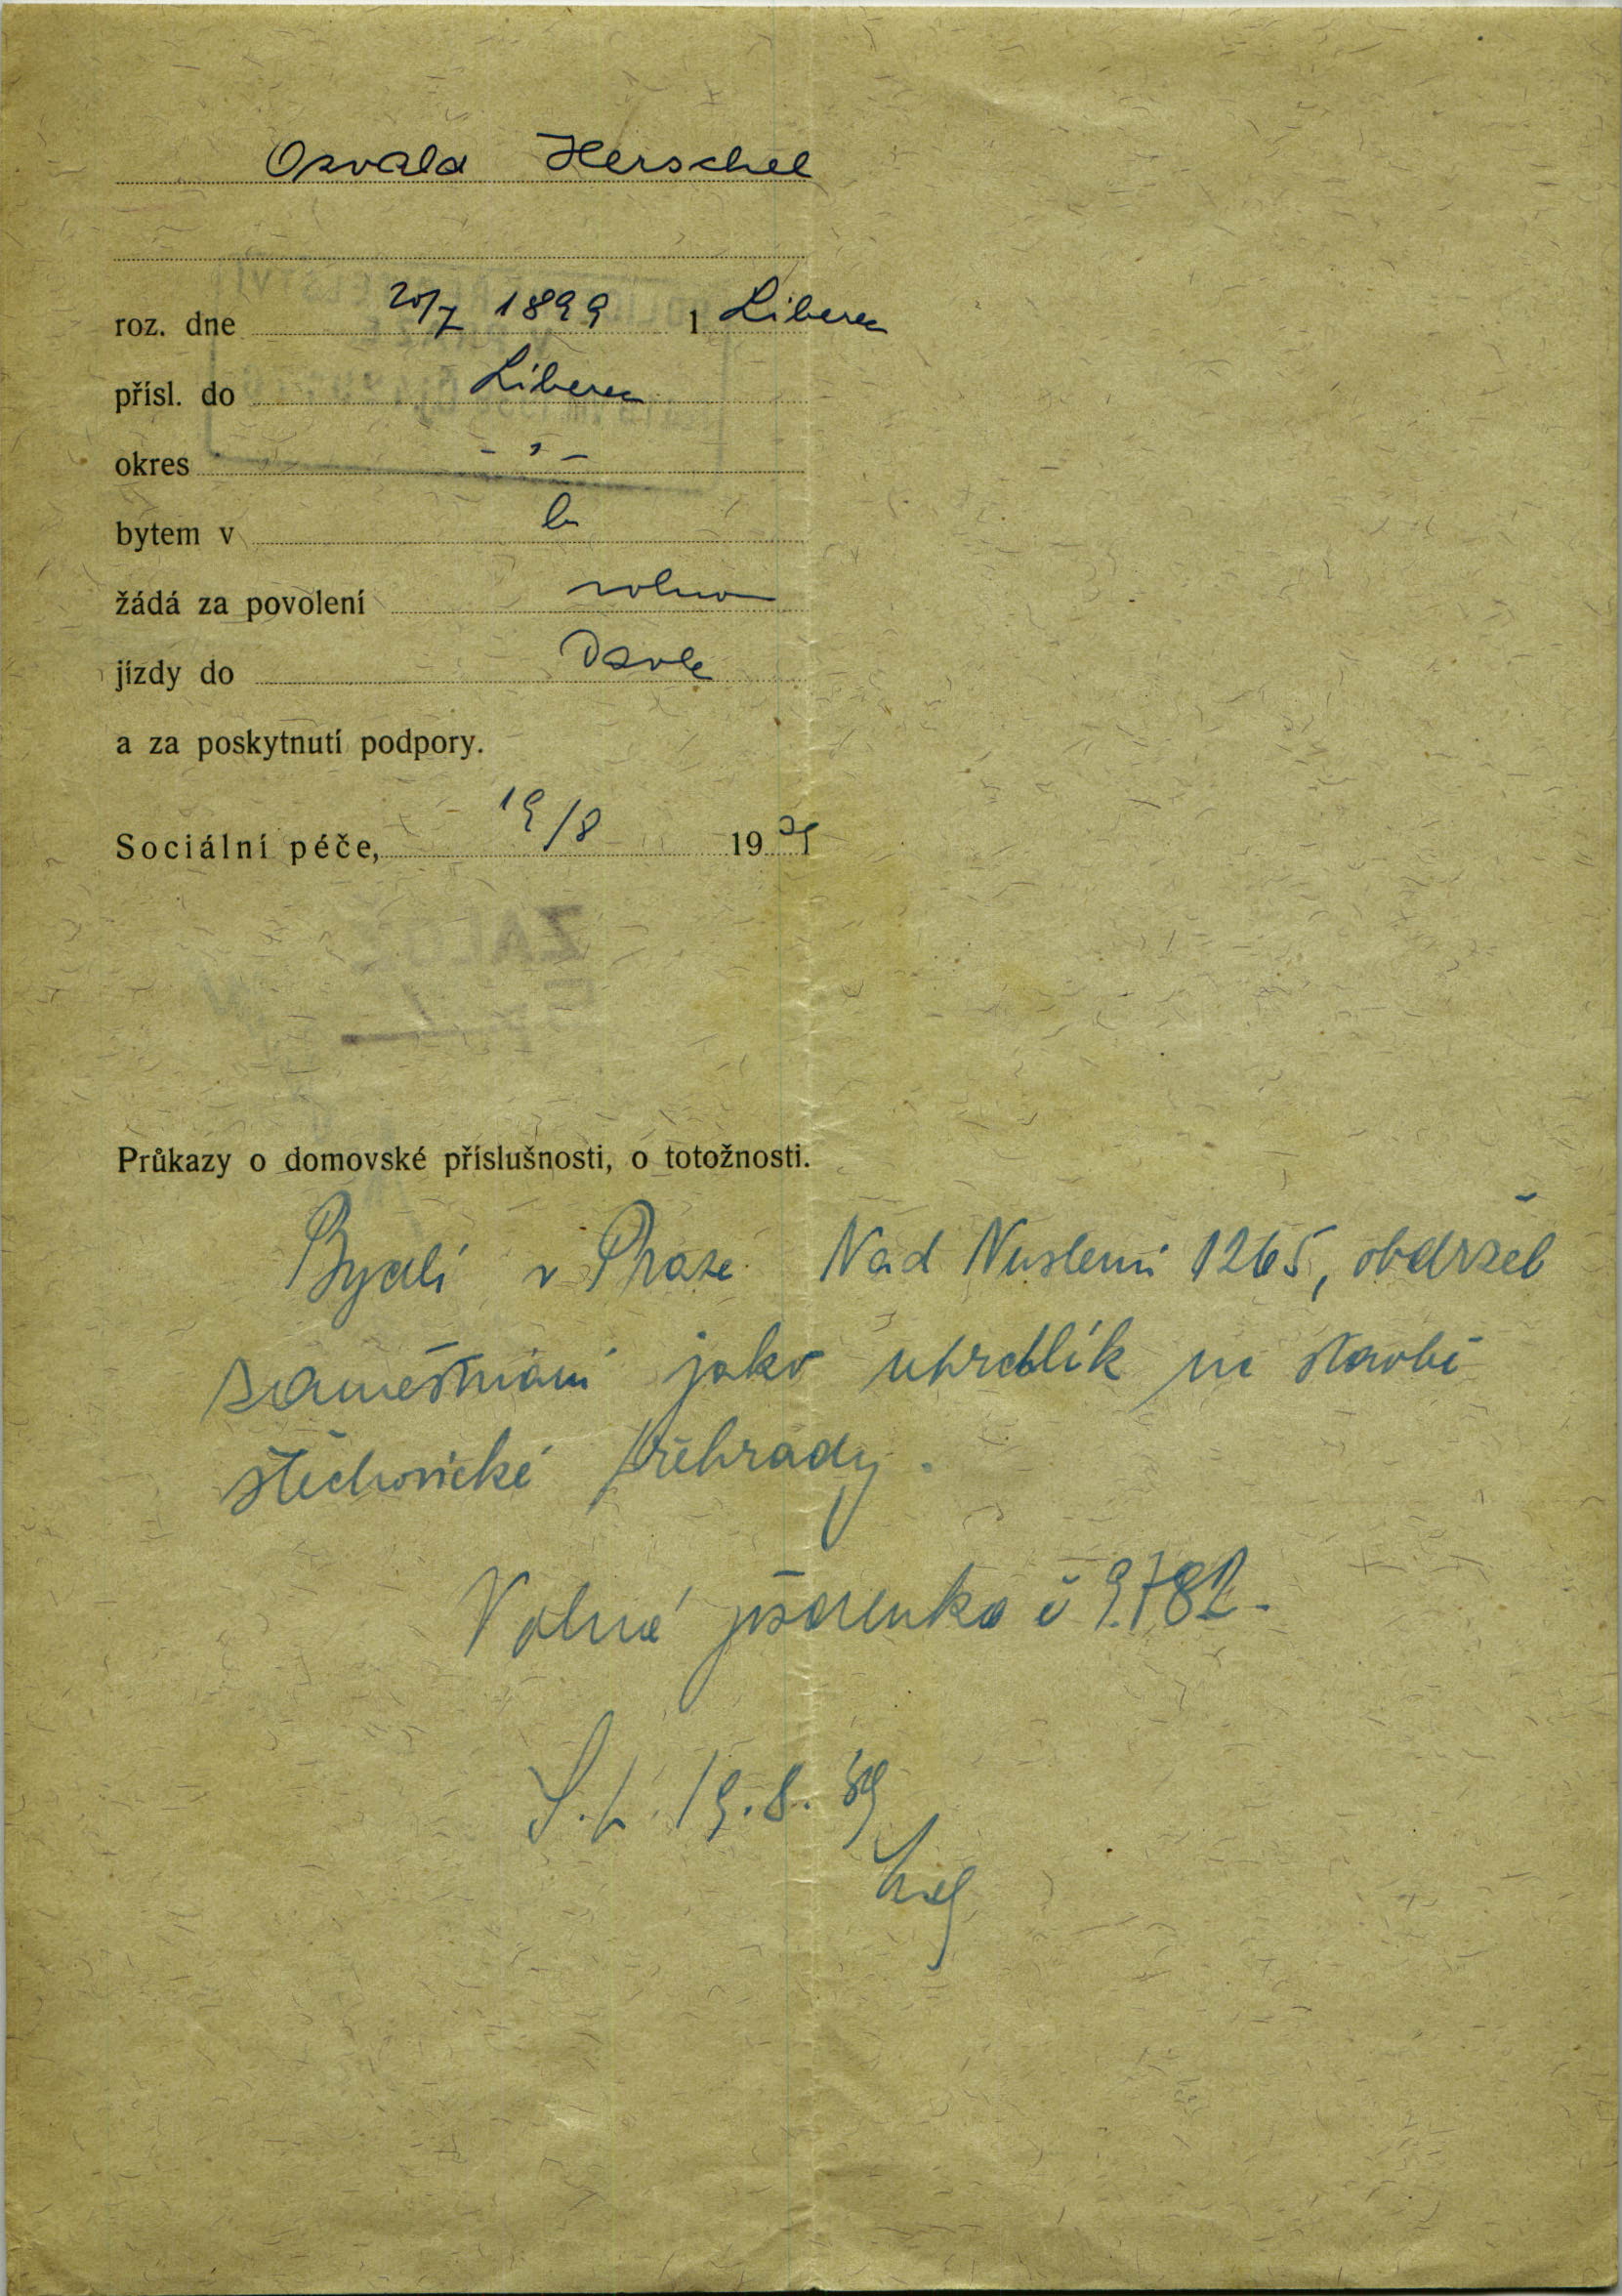 Osvald Herschel
roz. dne 20/7 1899 i Liberec
přísl. do Liberec
okres - " -
bytem v
žádá za povolení volno
jízdy do Davle
a za poskytnutí podpory.
Sociální péče, 19/8 1939
Průkazy o domovské příslušnosti, o totožnosti.
Bydlí v Praze Nad Nuslemi 1265, obdržel
zaměstnání jako na stavbě
štěchovické přehrady.
Volná jízdenka č 9.782.
19.8. 39